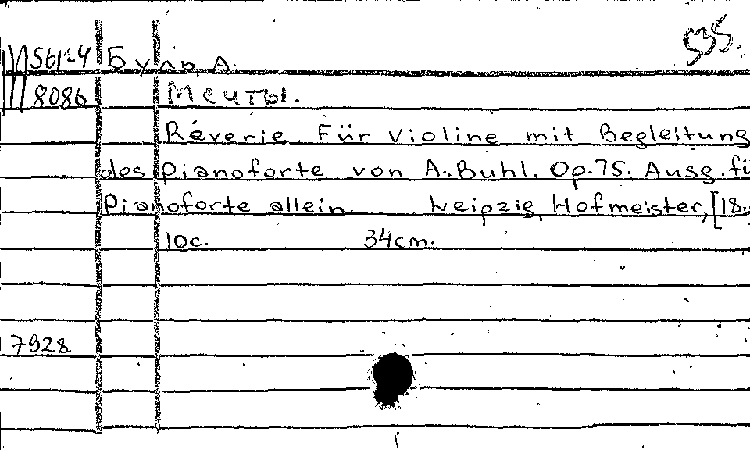 535.
М56124 Буль, А.
8086 Мечты.
Réverie. Für Violine mit Begleitung
des Pianoforte von A. Buhl. Op. 75. Ausg. fü
Pianoforte allein. Leipzig, Hofmeister, [18.
10c. 34cm.
7928